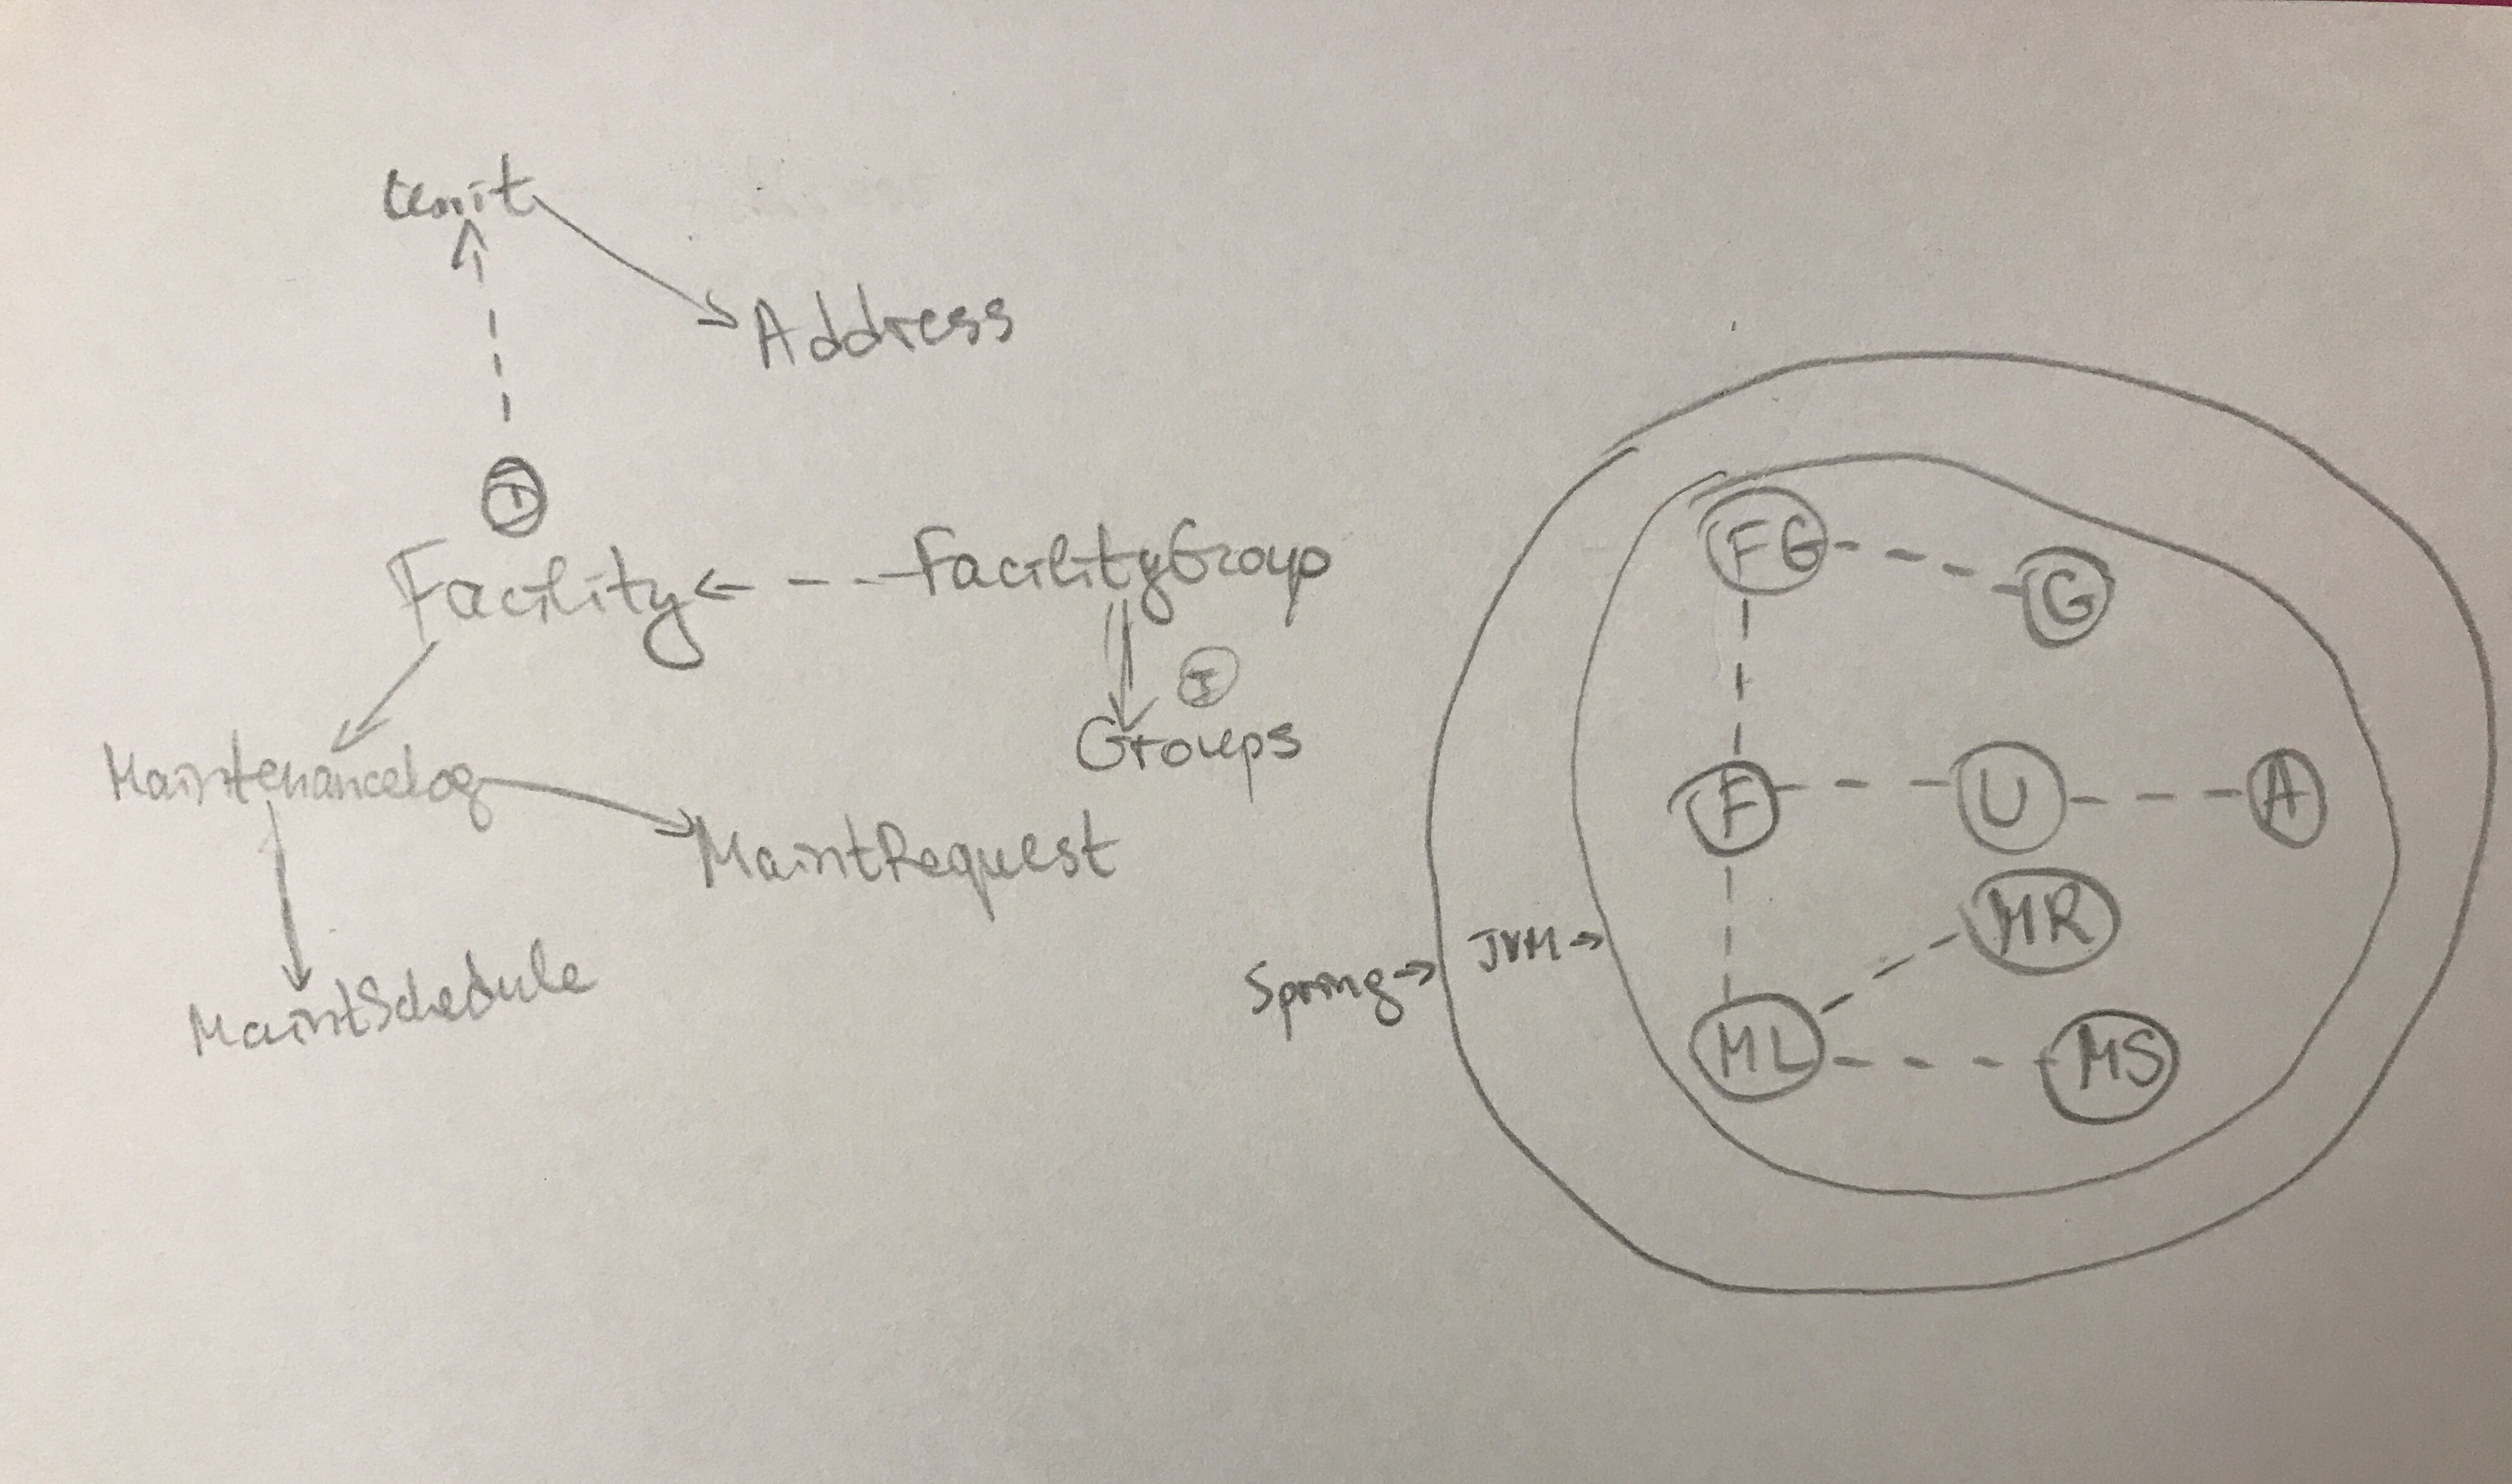 Unit
Address
I
Facility
FacilityGroup
I
Groups
MaintenanceLog
MaintRequest
MaintSchedule
FG
G
F
U
A
MR
Spring
JVM
ML
MS